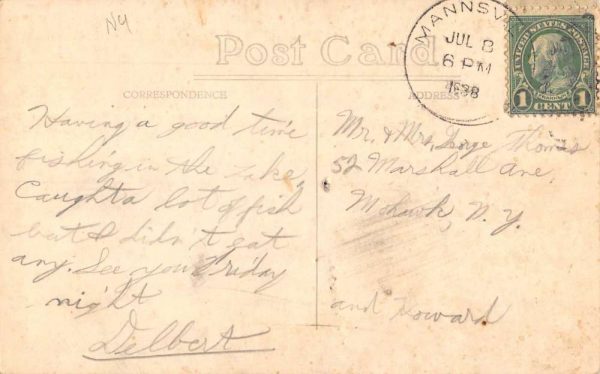 NY
Post Card
CORRESPONDENCE
ADDRESS
MANNSV
JUL 8
6 PM
1938
UNITED STATES POSTAGE
FRANKLIN
1 CENT 1
Having a good time
fishing in the lake,
Caught a lot of fish
but I didn't eat
any. See you Friday
night
Delbert
Mr. & Mrs. George Thomas
52 Marshall Ave.
Mohawk, N.Y.
and Howard